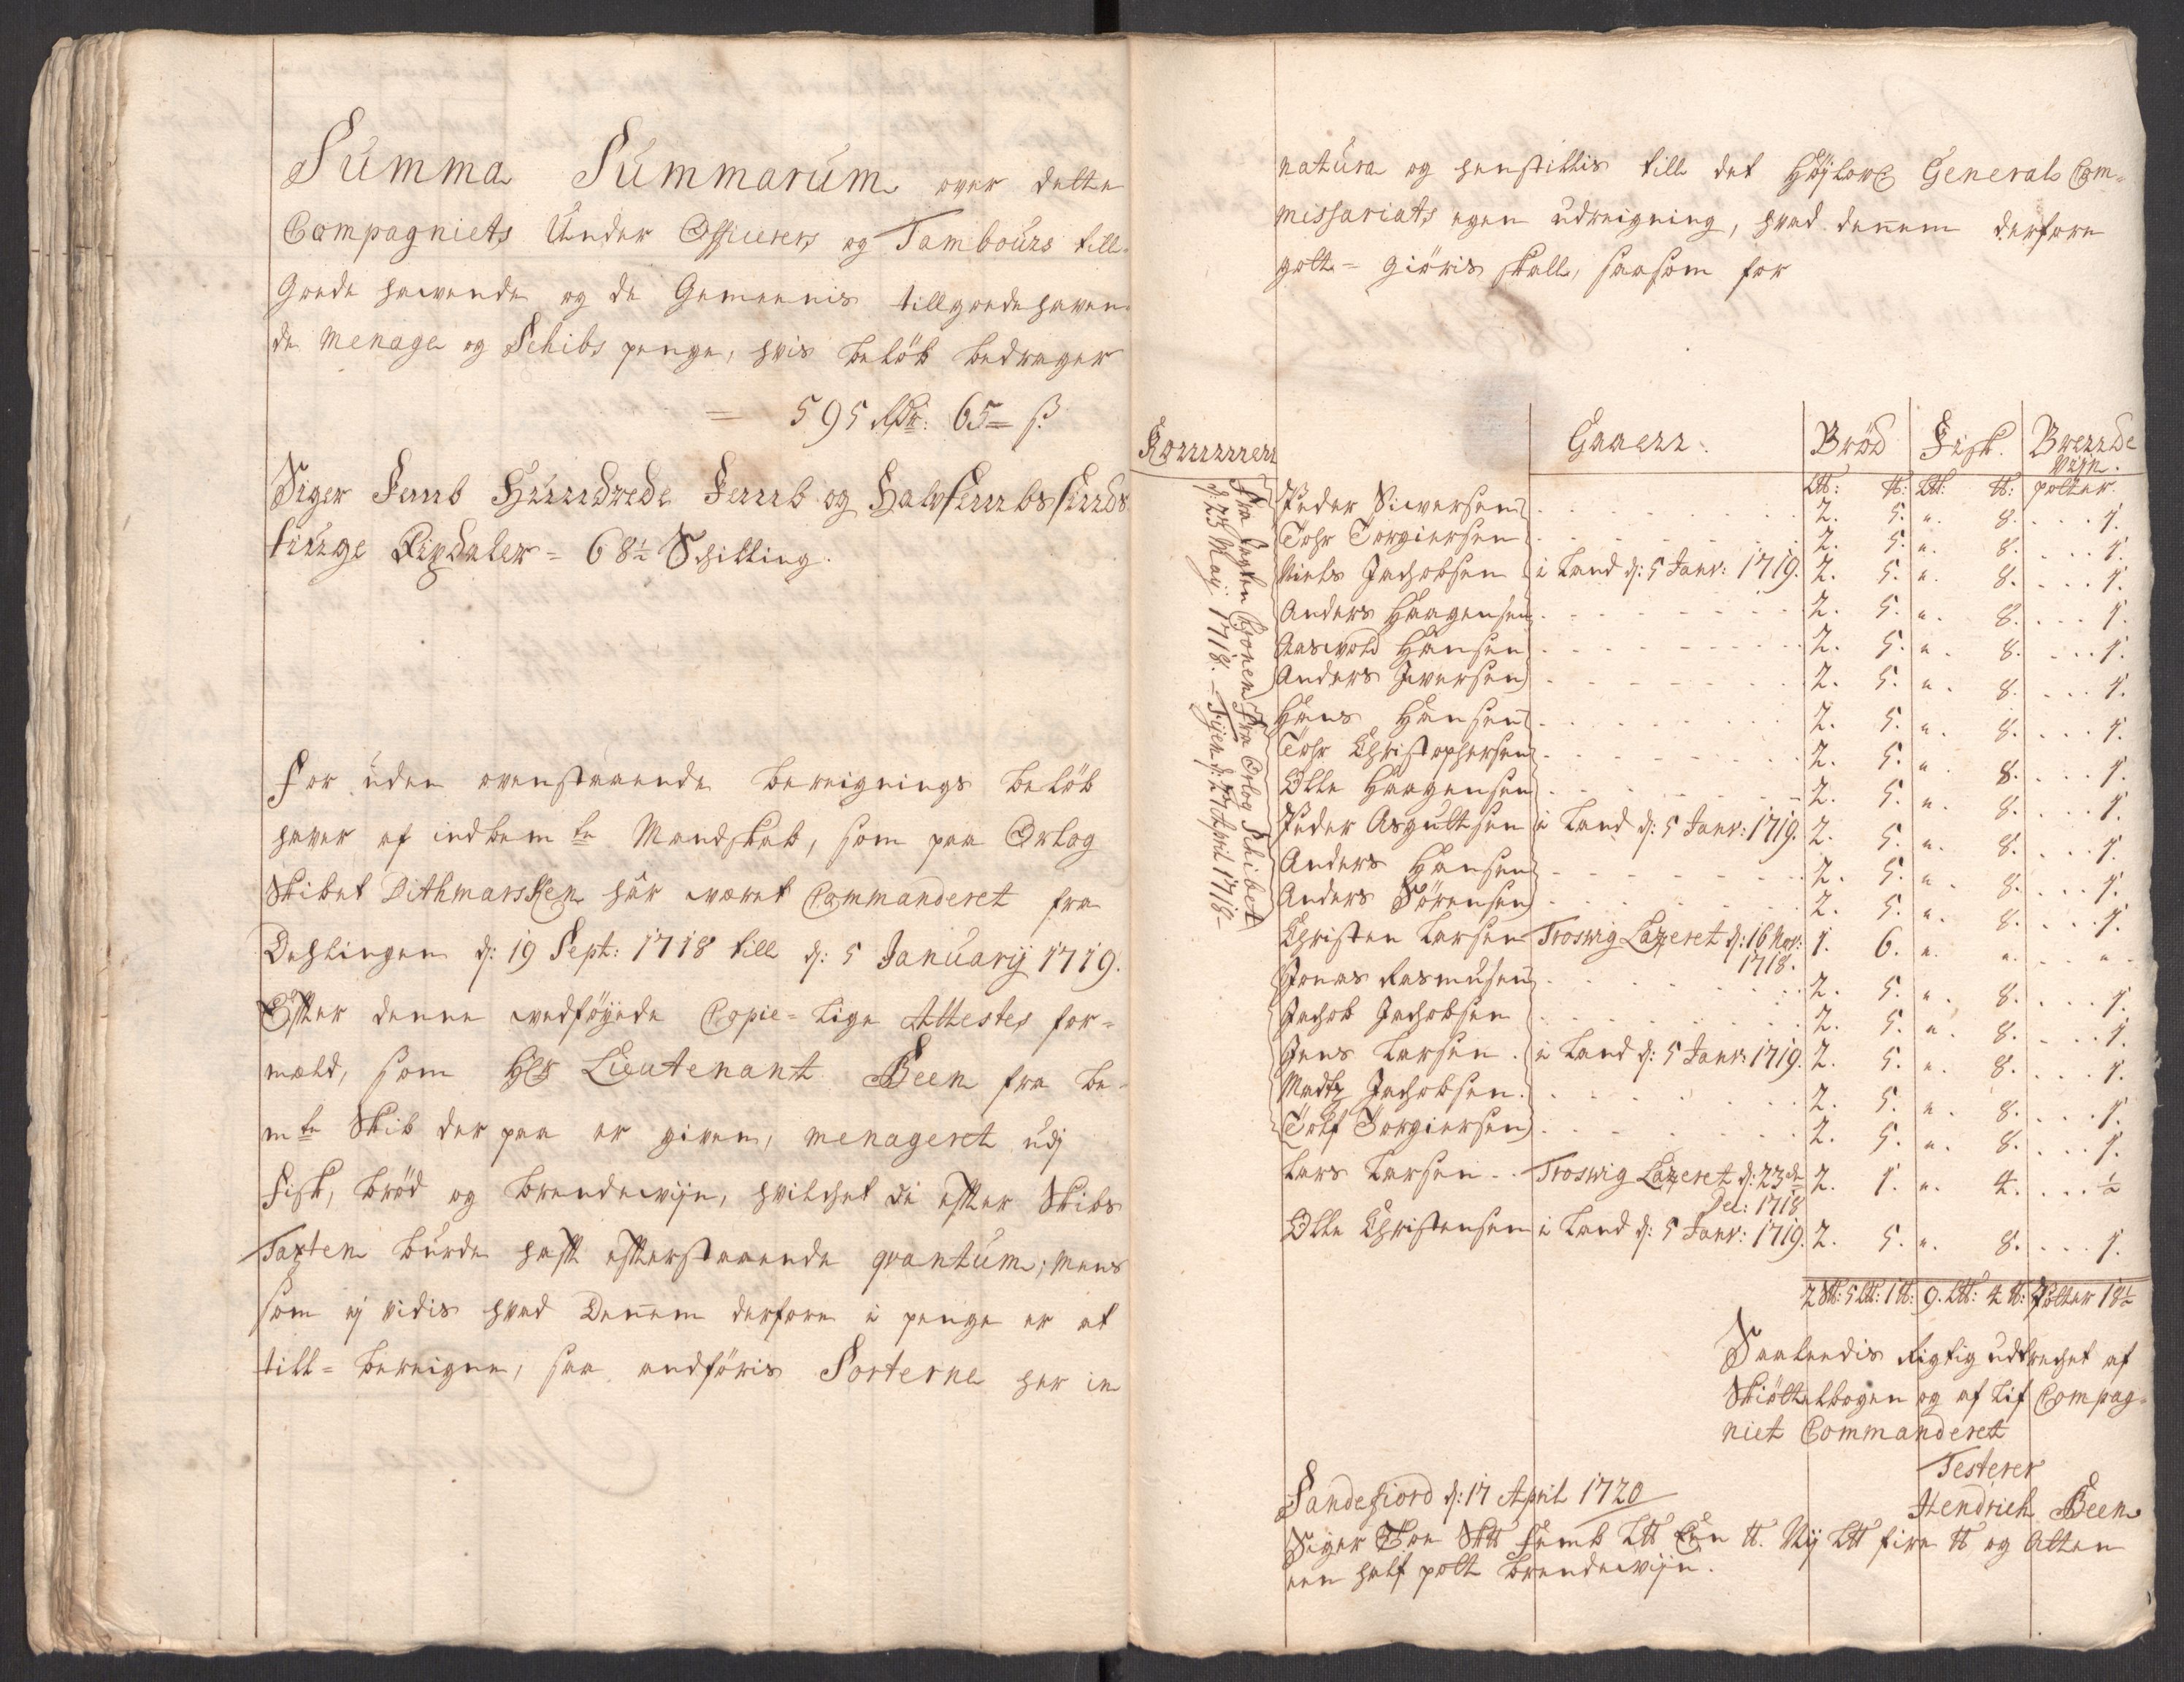 Summa Summarum over dette
Compagniets Under Officerers og Tambours till-
Goede hawende og de Gemeenis tillgoedehaven-
de Menage og Schibs penge, hvis beløb bedrager
= 595 Rdr: 65= ß.
Siger Femb Hundrede Femb og Halvfembssinds
tiuge Rixdaler = 68½ Schilling.
For uden ovenstaaende bereignings beløb
haver af indbem te Mandskab, som paa Orlog
Skibet Dithmarsken hår været Commanderet fra
Dehlingen d: 19 Sept: 1718 till d: 5 Januarij 1719.
Efter denne vedföyede Copie-lige Attestes for-
meld, som Hr Lieutenant Been fra be-
mte Skib der paa er given, menageret udj
Fisk, bröd og brendewijn, hvilchet de efter Skibs
Taxten burde hafft efterstaaende qvantum; mens
som ej vides hvad Dennem derfore i penge er at
till-bereigne, saa andföris Sorterne her in
natura og henstillis till det Höylovl General Com-
missariats egen udreigning, hvad dennem derfore
gott= giöris skall, saasom for
Kommen
Gaaen:
Bröd
Fisk.
Brende
Vijn.
L℔: ℔: L℔: ℔: potter.
Fra Jagten Cronen
d: 23 Maij 1718.
Fra Orlog Skibet
Fyen d: 27 April 1718
Peder Siwersen . . . 2. 5. „. 8. . . . 1.
Tohr Torgiersen . . . 2. 5. „. 8. . . . 1.
Niels Jachobsen i Land d: 5 Janv: 1719. 2. 5. „. 8. . . . 1.
Anders Haagensen . . . 2. 5. „. 8. . . . 1.
Aaswold Hansen . . . 2. 5. „. 8. . . . 1.
Anders Iwersen . . . 2. 5. „. 8. . . . 1.
Hans Hansen . . . 2. 5. „. 8. . . . 1.
Tohr Christophersen . . . 2. 5. „. 8. . . . 1.
Olle Haagensen . . . 2. 5. „. 8. . . . 1.
Peder Asgultsen i Land d: 5 Janv: 1719. 2. 5. „. 8. . . . 1.
Anders Hansen . . . 2. 5. „. 8. . . . 1.
Anders Sörensen . . . 2. 5. „. 8. . . . 1.
Christen Larsen Troswig Lazeret d: 16 Nov: 1718. 1. 6. „. „. . . „.
Jonas Rasmusen . . . 2. 5. „. 8. . . . 1.
Jachob Jachobsen . . . 2. 5. „. 8. . . . 1.
Jens Larsen . i Land d: 5 Janv: 1719. 2. 5. „. 8. . . . 1.
Madtz Jachobsen . . . 2. 5. „. 8. . . . 1.
Tolf Torgiersen . . . 2. 5. „. 8. . . . 1.
Lars Larsen . . Troswig Lazeret d: 23de Dec: 1718 2. 1. „. 4. . . . ½
Olle Christensen i Land d: 5 Janv: 1719. 2. 5. „. 8. . . . 1.
2 S℔: 5 L℔: 1 ℔: 9. L℔: 4 ℔: Potter 18½
Saaledis Rigtig udtrachet af
Skiöttelbogen og af Lif Compag-
niet Commanderet
Testerer
Sandefiord d: 17 April 1720
Hendrich Been
Siger Toe S℔ Femb L℔ Een ℔. Nij L℔ fire ℔ og Atten
een half pott brendewijn.